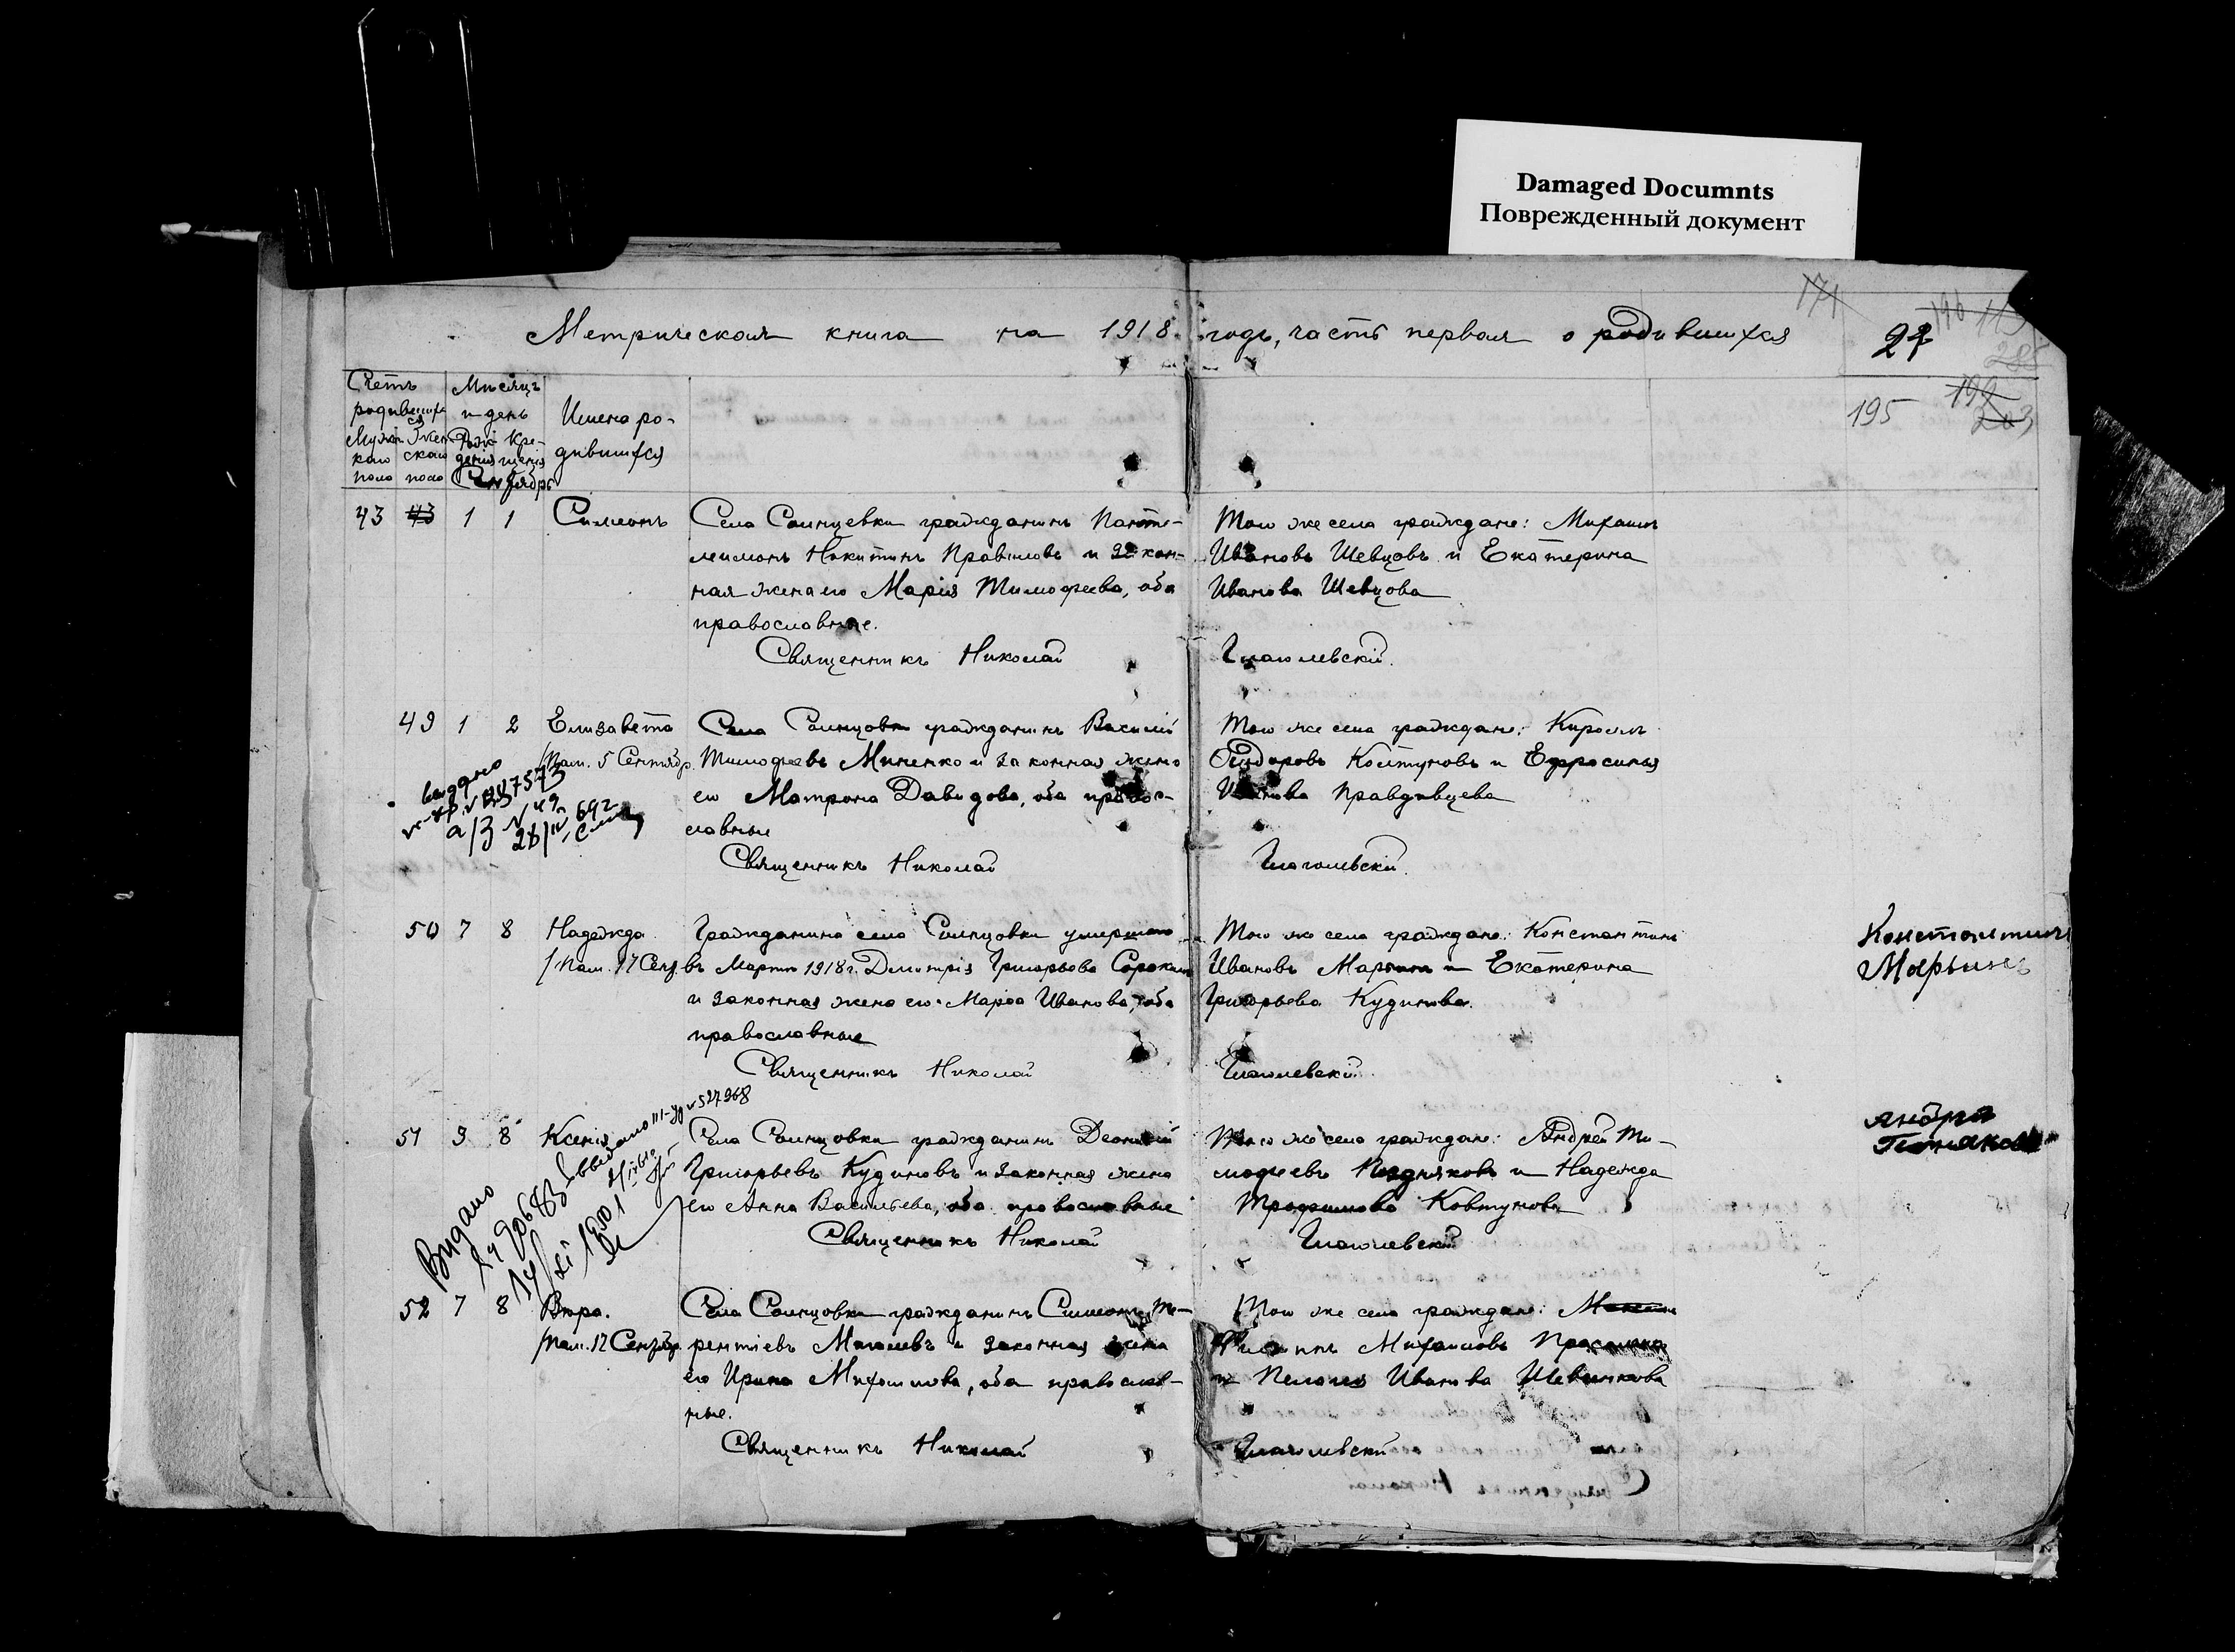 Damaged Documnts
Поврежденный документ
Метрическая книга на 1918 годъ, часть первая о родившихся
171
27
195
Счетъ родившихся
Мужскаго пола
Женскаго пола
Мѣсяцъ и день
Рожденія
Крещенія
Сентябрь
Имена родившихся
43 43 1 1 Симеонъ
Села Солнцевки гражданинъ Панте-
леимонъ Никитинъ Правиловъ и закон-
ная жена его Марія Тимофеева, оба
православные.
Священникъ Николай
Того же села граждане: Михаилъ
Ивановъ Шевцовъ и Екатерина
Иванова Шевцова
Глаголевскій.
49 1 2 Елизавета
/Пом. 5 Сентябр.
Села Солнцовки гражданинъ Василій
Тимофеевъ Миненко и законная жена
его Матрона Давидова, оба правос-
лавные
Священникъ Николай
Того же села граждане: Кириллъ
Федоровъ Колтуновъ и Ефросинья
Иванова Правдивцева
Глаголевскій.
50 7 8 Надежда
/Пом. 17 Сен.
Гражданина села Солнцовки умершаго
въ Мартѣ 1918 г. Димитрія Григорьева Сорокина
и законная жена его Марѳа Иванова, оба
православные
Священникъ Николай
Того же села граждане: Константинъ
Ивановъ Марьинъ и Екатерина
Григорьева Кудинова.
Глаголевскій.
Константинъ
Марьинъ
51 3 8 Ксенія
Села Солнцовки гражданинъ Леонтій
Григорьевъ Кудиновъ и законная жена
его Анна Васильева, оба православные
Священникъ Николай
Того же села граждане: Андрей Ти-
мофеевъ Поздняковъ и Надежда
Трофимова Ковтунова
Глаголевскій
Андрей
Видано
52 7 8 Вѣра.
/Пом. 12 Сентябр.
Села Солнцовки гражданинъ Симеонъ Те-
рентіевъ Моголевъ и законная жена
его Ирина Михаилова, оба православ-
ные.
Священникъ Николай
Того же села граждане:
Филиппъ Михаиловъ
и Пелагія Иванова Шевчикова
Глаголевскій